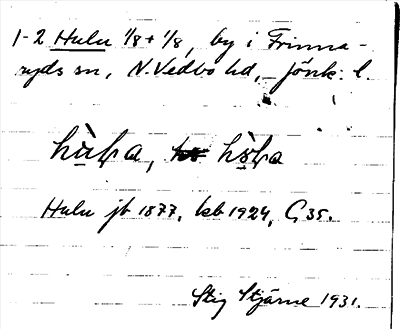 1-2 Hulu 1/8 + 1/8, by i Frinna-
ryds sn, N. Vedbo hd, Jönk. l.
Hulu jb 1877, kb 1924, G 35.
Stig Stjärne 1931.